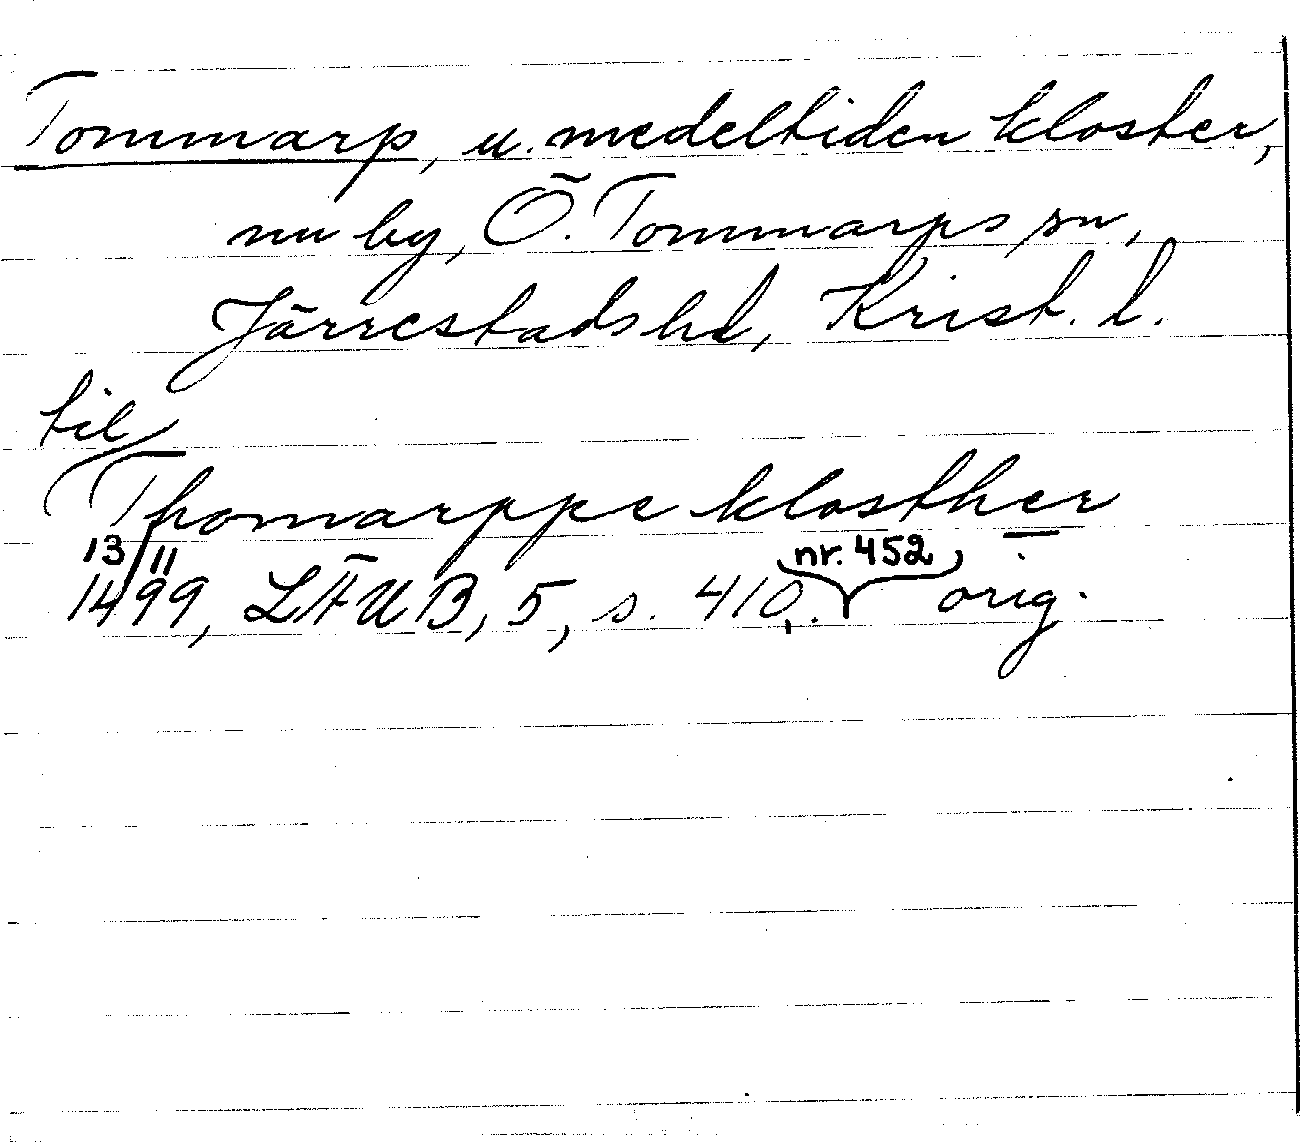 Tommarp, u. medeltiden kloster,
nu by, Ö. Tommarps sn,
Järrestads hd, Krist. l.
til
Thomarppe klosther
13/11
1499, LÄUB, 5, s. 410, nr. 452. orig.